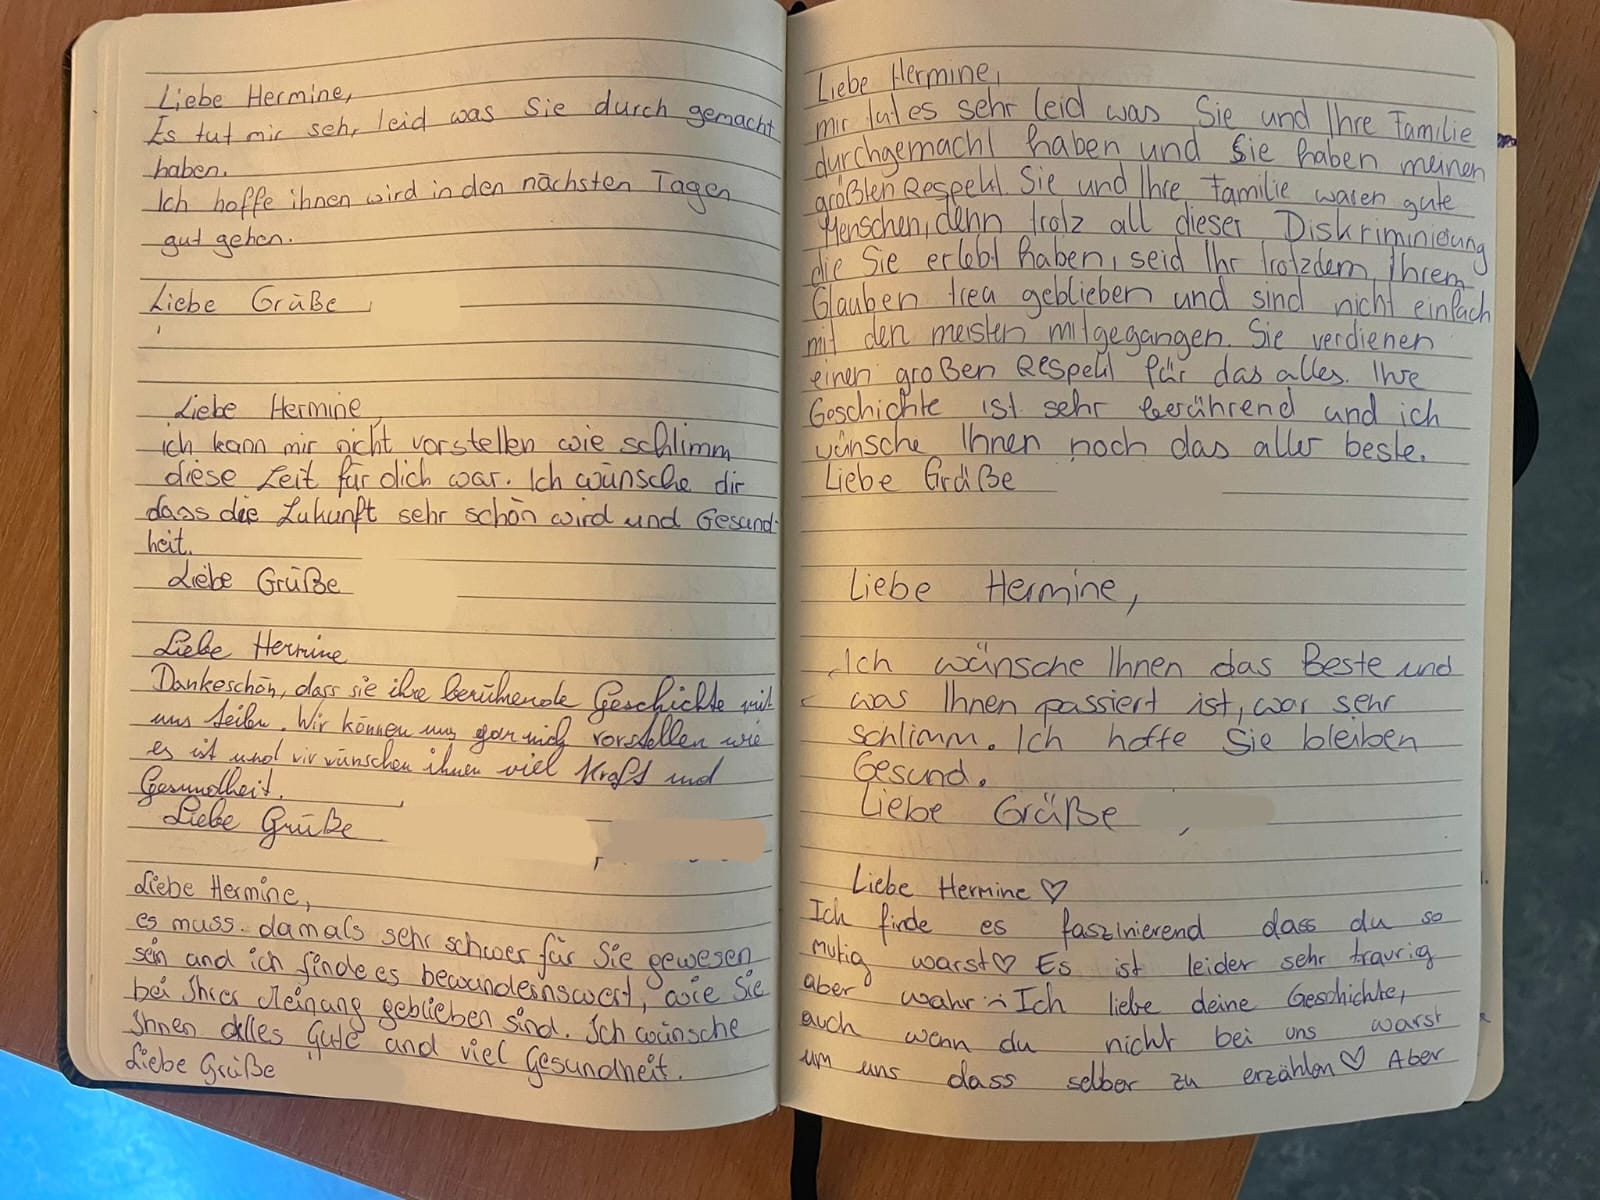 Liebe Hermine,
Es tut mir sehr leid was Sie durch gemacht
haben.
Ich hoffe ihnen wird in den nächsten Tagen
gut gehen.
Liebe Grüße
Liebe Hermine,
ich kann mir nicht vorstellen wie schlimm
diese Zeit für dich war. Ich wünsche dir
dass die Zukunft sehr schön wird und Gesund-
heit.
Liebe Grüße
Liebe Hermine
Dankeschön, dass sie ihre berührende Geschichte mit
uns teilen. Wir können uns gar nich vorstellen wie
es ist und wir wünschen ihnen viel Kraft und
Gesundheit.
Liebe Grüße
Liebe Hermine,
es muss damals sehr schwer für Sie gewesen
sein und ich finde es bewundernswert, wie Sie
bei Ihrer Meinung geblieben sind. Ich wünsche
Ihnen alles Gute und viel Gesundheit.
Liebe Grüße
Liebe Hermine,
mir tut es sehr leid was Sie und Ihre Familie
durchgemacht haben und Sie haben meinen
größten Respekt. Sie und Ihre Familie waren gute
Menschen, denn trotz all dieser Diskriminierung
die Sie erlebt haben, seid Ihr trotzdem Ihrem
Glauben treu geblieben und sind nicht einfach
mit den meisten mitgegangen. Sie verdienen
einen großen Respekt für das alles. Ihre
Geschichte ist sehr berührend und ich
wünsche Ihnen noch das aller beste.
Liebe Grüße
Liebe Hermine,
Ich wünsche Ihnen das Beste und
was Ihnen passiert ist, war sehr
schlimm. Ich hoffe Sie bleiben
Gesund.
Liebe Grüße
Liebe Hermine ♡
Ich finde es faszinierend dass du so
mutig warst♡ Es ist leider sehr traurig
aber wahr :( Ich liebe deine Geschichte,
auch wenn du nicht bei uns warst
um uns dass selber zu erzählen♡ Aber